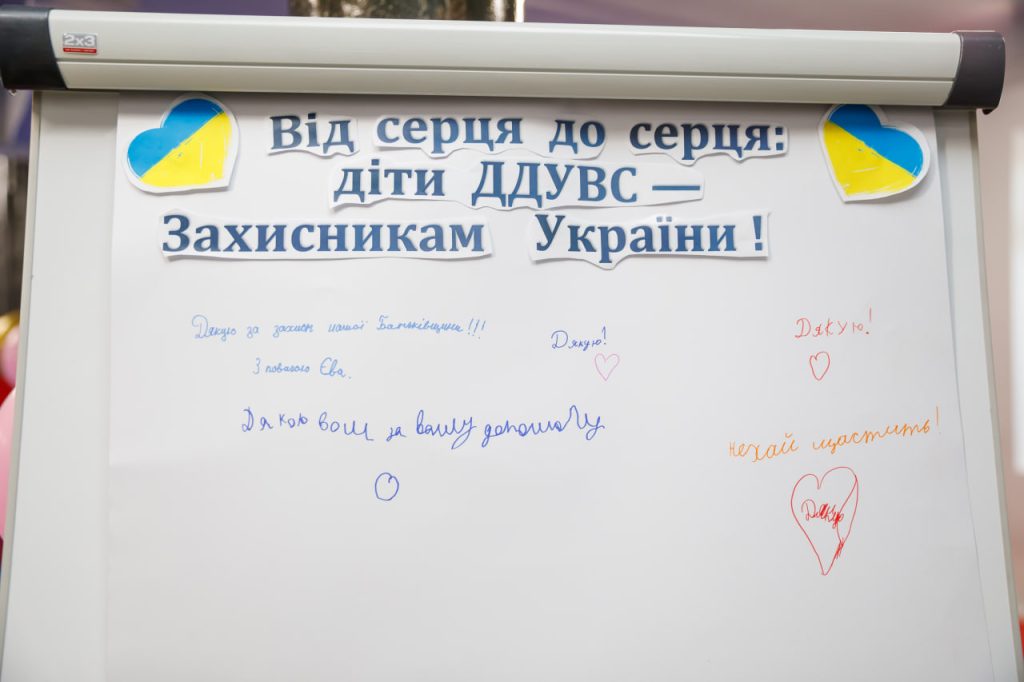 2x3
Від серця до серця:
діти ДДУВС —
Захисникам України!
Дякую за захист нашої Батьківщини!!!
З повагою Єва.
Дякую!
Дякую!
Дякою вам за вашу допомогу
нехай щастить!
Дякую